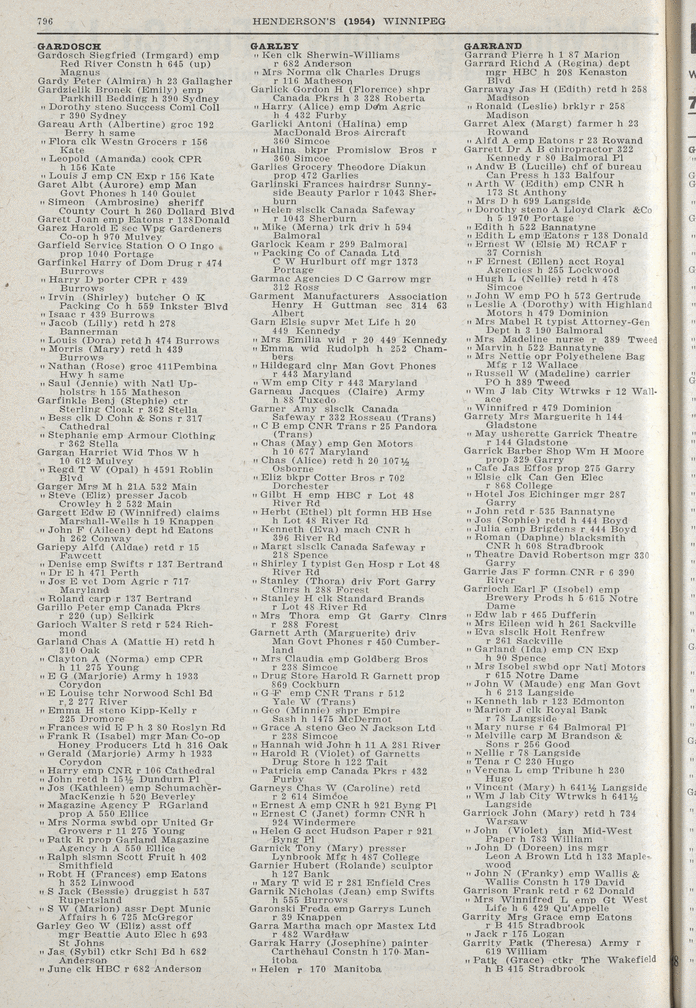 796
HENDERSON'S (1954) WINNIPEG
GARDOSCH
Gardosch Siegfried (Irmgard) emp
Red River Constn h 645 (up)
Magnus
Gardy Peter (Almira) h 23 Gallagher
Gardzielik Bronek (Emily) emp
Parkhill Bedding h 390 Sydney
" Dorothy steno Success Coml Coll
r 390 Sydney
Gareau Arth (Albertine) groc 192
Berry h same
" Flora clk Westn Grocers r 156
Kate
" Leopold (Amanda) cook CPR
h 156 Kate
" Louis J emp CN Exp r 156 Kate
Garet Albt (Aurore) emp Man
Govt Phones h 140 Goulet
" Simeon (Ambrosine) sheriff
County Court h 260 Dollard Blvd
Garett Joan emp Eatons r 138Donald
Garez Harold E sec Wpg Gardeners
Co-op h 970 Mulvey
Garfield Service Station O O Ingo
prop 1040 Portage
Garfinkel Harry of Dom Drug r 474
Burrows
" Harry D porter CPR r 439
Burrows
" Irvin (Shirley) butcher O K
Packing Co h 559 Inkster Blvd
" Isaac r 439 Burrows
" Jacob (Lilly) retd h 278
Bannerman
" Louis (Dora) retd h 474 Burrows
" Morris (Mary) retd h 439
Burrows
" Nathan (Rose) groc 411Pembina
Hwy h same
" Saul (Jennie) with Natl Up-
holstrs h 155 Matheson
Garfinkle Benj (Stephie) ctr
Sterling Cloak r 362 Stella
" Bess clk D Cohn & Sons r 317
Cathedral
" Stephanie emp Armour Clothing
r 362 Stella
Gargan Harriet Wid Thos W h
10 612 Mulvey
" Regd T W (Opal) h 4591 Roblin
Blvd
Garger Mrs M h 21A 532 Main
" Steve (Eliz) presser Jacob
Crowley h 2 532 Main
Gargett Edw E (Winnifred) claims
Marshall-Wells h 19 Knappen
" John F (Aileen) dept hd Eatons
h 262 Conway
Gariepy Alfd (Aldae) retd r 15
Fawcett
" Denise emp Swifts r 137 Bertrand
" Dr E h 471 Perth
" Jos E vet Dom Agric r 717
Maryland
" Roland carp r 137 Bertrand
Garillo Peter emp Canada Pkrs
r 220 (up) Selkirk
Garloch Walter S retd r 524 Rich-
mond
Garland Chas A (Mattie H) retd h
310 Oak
" Clayton A (Norma) emp CPR
h 11 275 Young
" E G (Marjorie) Army h 1933
Corydon
" E Louise tchr Norwood Schl Bd
r,2 277 River
" Emma H steno Kipp-Kelly r
225 Dromore
" Frances wid E P h 3 80 Roslyn Rd
" Frank R (Isabel) mgr Man Co-op
Honey Producers Ltd h 316 Oak
" Gerald (Marjorie) Army h 1933
Corydon
" Harry emp CNR r 106 Cathedral
" John retd h 15½ Dundurn Pl
" Jos (Kathleen) emp Schumacher-
MacKenzie h 520 Beverley
" Magazine Agency P RGarland
prop A 550 Ellice
" Mrs Norma swbd opr United Gr
Growers r 11 275 Young
" Patk R prop Garland Magazine
Agency h A 550 Ellice
" Ralph slsmn Scott Fruit h 402
Smithfield
" Robt H (Frances) emp Eatons
h 352 Linwood
" S Jack (Bessie) druggist h 537
Rupertsland
" S W (Marion) assr Dept Munic
Affairs h 6 725 McGregor
Garley Geo W (Eliz) asst off
mgr Beattie Auto Elec h 693
St Johns
" Jas (Sybil) ctkr Schl Bd h 682
Anderson
" June clk HBC r 682 Anderson
GARLEY
" Ken clk Sherwin-Williams
r 682 Anderson
" Mrs Norma clk Charles Drugs
r 116 Matheson
Garlick Gordon H (Florence) shpr
Canada Pkrs h 3 328 Roberta
" Harry (Alice) emp Dom Agric
h 4 432 Furby
Garlicki Antoni (Halina) emp
MacDonald Bros Aircraft
360 Simcoe
" Halina bkpr Promislow Bros r
360 Simcoe
Garlies Grocery Theodore Diakun
prop 472 Garlies
Garlinski Frances hairdrsr Sunny-
side Beauty Parlor r 1043 Sher-
burn
" Helen slsclk Canada Safeway
r 1043 Sherburn
" Mike (Merna) trk driv h 594
Balmoral
Garlock Keam r 299 Balmoral
" Packing Co of Canada Ltd
C W Hurlburt off mgr 1373
Portage
Garmac Agencies D C Garrow mgr
312 Ross
Garment Manufacturers Association
Henry H Guttman sec 314 63
Albert
Garn Elsie supvr Met Life h 20
449 Kennedy
" Mrs Emilia wid r 20 449 Kennedy
" Emma wid Rudolph h 252 Cham-
bers
" Hildegard clnr Man Govt Phones
r 443 Maryland
" Wm emp City r 443 Maryland
Garneau Jacques (Claire) Army
h 88 Tuxedo
Garner Amy slsclk Canada
Safeway r 332 Rosseau (Trans)
" C B emp CNR Trans r 25 Pandora
(Trans)
" Chas (May) emp Gen Motors
h 10 677 Maryland
" Chas (Alice) retd h 20 107½
Osborne
" Eliz bkpr Cotter Bros r 702
Dorchester
" Gilbt H emp HBC r Lot 48
River Rd
" Herbt (Ethel) plt formn HB Hse
h Lot 48 River Rd
" Kenneth (Eva) mach CNR h
396 River Rd
" Margt slsclk Canada Safeway r
218 Spence
" Shirley I typist Gen Hosp r Lot 48
River Rd
" Stanley (Thora) driv Fort Garry
Clnrs h 288 Forest
" Stanley H clk Standard Brands
r Lot 48 River Rd
" Mrs Thora emp Gt Garry Clnrs
r 288 Forest
Garnett Arth (Marguerite) driv
Man Govt Phones r 450 Cumber-
land
" Mrs Claudia emp Goldberg Bros
r 238 Simcoe
" Drug Store Harold R Garnett prop
869 Cockburn
" G F emp CNR Trans r 512
Yale W (Trans)
" Geo (Minnie) shpr Empire
Sash h 1475 McDermot
" Grace A steno Geo N Jackson Ltd
r 238 Simcoe
" Hannah wid John h 11 A 281 River
" Harold R (Violet) of Garnetts
Drug Store h 122 Tait
" Patricia emp Canada Pkrs r 432
Furby
Garneys Chas W (Caroline) retd
r 2 614 Simcoe
" Ernest A emp CNR h 921 Byng Pl
" Ernest C (Janet) formn CNR h
924 Windermere
" Helen G acct Hudson Paper r 921
Byng Pl
Garnick Tony (Mary) presser
Lynbrook Mfg h 487 College
Garnier Hubert (Rolande) sculptor
h 127 Bank
" Mary T wid E r 281 Enfield Cres
Garnik Nicholas (Jean) emp Swifts
h 555 Burrows
Garonski Freda emp Garrys Lunch
r 39 Knappen
Garra Martha mach opr Mastex Ltd
r 482 Wardlaw
Garrak Harry (Josephine) painter
Carthehaul Constn h 170 Man-
itoba
" Helen r 170 Manitoba
GARRAND
Garrand Pierre h 1 87 Marion
Garrard Richd A (Regina) dept
mgr HBC h 208 Kenaston
Blvd
Garraway Jas H (Edith) retd h 258
Madison
" Ronald (Leslie) brklyr r 258
Madison
Garret Alex (Margt) farmer h 23
Rowand
" Alfd A emp Eatons r 23 Rowand
Garrett Dr A B chiropractor 322
Kennedy r 80 Balmoral Pl
" Andw B (Lucille) chf of bureau
Can Press h 133 Balfour
" Arth W (Edith) emp CNR h
173 St Anthony
" Mrs D h 699 Langside
" Dorothy steno A Lloyd Clark &Co
h 5 1970 Portage
" Edith h 522 Bannatyne
" Edith L emp Eatons r 138 Donald
" Ernest W (Elsie M) RCAF r
37 Cornish
" F Ernest (Ellen) acct Royal
Agencies h 255 Lockwood
" Hugh L (Nellie) retd h 478
Simcoe
" John W emp PO h 573 Gertrude
" Leslie A (Dorothy) with Highland
Motors h 479 Dominion
" Mrs Mabel R typist Attorney-Gen
Dept h 3 190 Balmoral
" Mrs Madeline nurse r 389 Tweed
" Marvin h 522 Bannatyne
" Mrs Nettie opr Polyethelene Bag
Mfg r 12 Wallace
" Russell W (Madeline) carrier
PO h 389 Tweed
" Wm J lab City Wtrwks r 12 Wall-
ace
" Winnifred r 479 Dominion
Garrety Mrs Marguerite h 144
Gladstone
" May usherette Garrick Theatre
r 144 Gladstone
Garrick Barber Shop Wm H Moore
prop 329 Garry
" Cafe Jas Effos prop 275 Garry
" Elsie clk Can Gen Elec
r 868 College
" Hotel Jos Eichinger mgr 287
Garry
" John retd r 535 Bannatyne
" Jos (Sophie) retd h 444 Boyd
" Julia emp Brigdens r 444 Boyd
" Roman (Daphne) blacksmith
CNR h 608 Stradbrook
" Theatre David Robertson mgr 330
Garry
Garrie Jas F formn CNR r 6 390
River
Garrioch Earl F (Isobel) emp
Brewery Prods h 5 615 Notre
Dame
" Edw lab r 465 Dufferin
" Mrs Eileen wid h 261 Sackville
" Eva slsclk Holt Renfrew
r 261 Sackville
" Garland (Ida) emp CN Exp
h 90 Spence
" Mrs Isobel swbd opr Natl Motors
r 615 Notre Dame
" John W (Maude) eng Man Govt
h 6 213 Langside
" Kenneth lab r 123 Edmonton
" Marion J clk Royal Bank
r 78 Langside
" Mary nurse r 64 Balmoral Pl
" Melville carp M Brandson &
Sons r 256 Good
" Nellie r 78 Langside
" Tena r C 230 Hugo
" Verena L emp Tribune h 230
Hugo
" Vincent (Mary) h 641½ Langside
" Wm J lab City Wtrwks r 641½
Langside
Garriock John (Mary) retd h 734
Warsaw
" John (Violet) jan Mid-West
Paper h 783 William
" John D (Doreen) ins mgr
Leon A Brown Ltd h 133 Maple-
wood
" John N (Franky) emp Wallis &
Wallis Constn h 179 David
Garrison Frank retd r 62 Donald
" Mrs Winnifred L emp Gt West
Life h 6 429 Qu'Appelle
Garrity Mrs Grace emp Eatons
r B 415 Stradbrook
" Jack r 175 Logan
Garrity Patk (Theresa) Army r
619 William
" Patk (Grace) ctkr The Wakefield
h B 415 Stradbrook